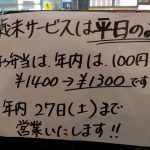 歳末サービスは平日の
弁当は、年内は、100円
¥1400→¥1300です
年内 27日(土)まで
営業いたします!!